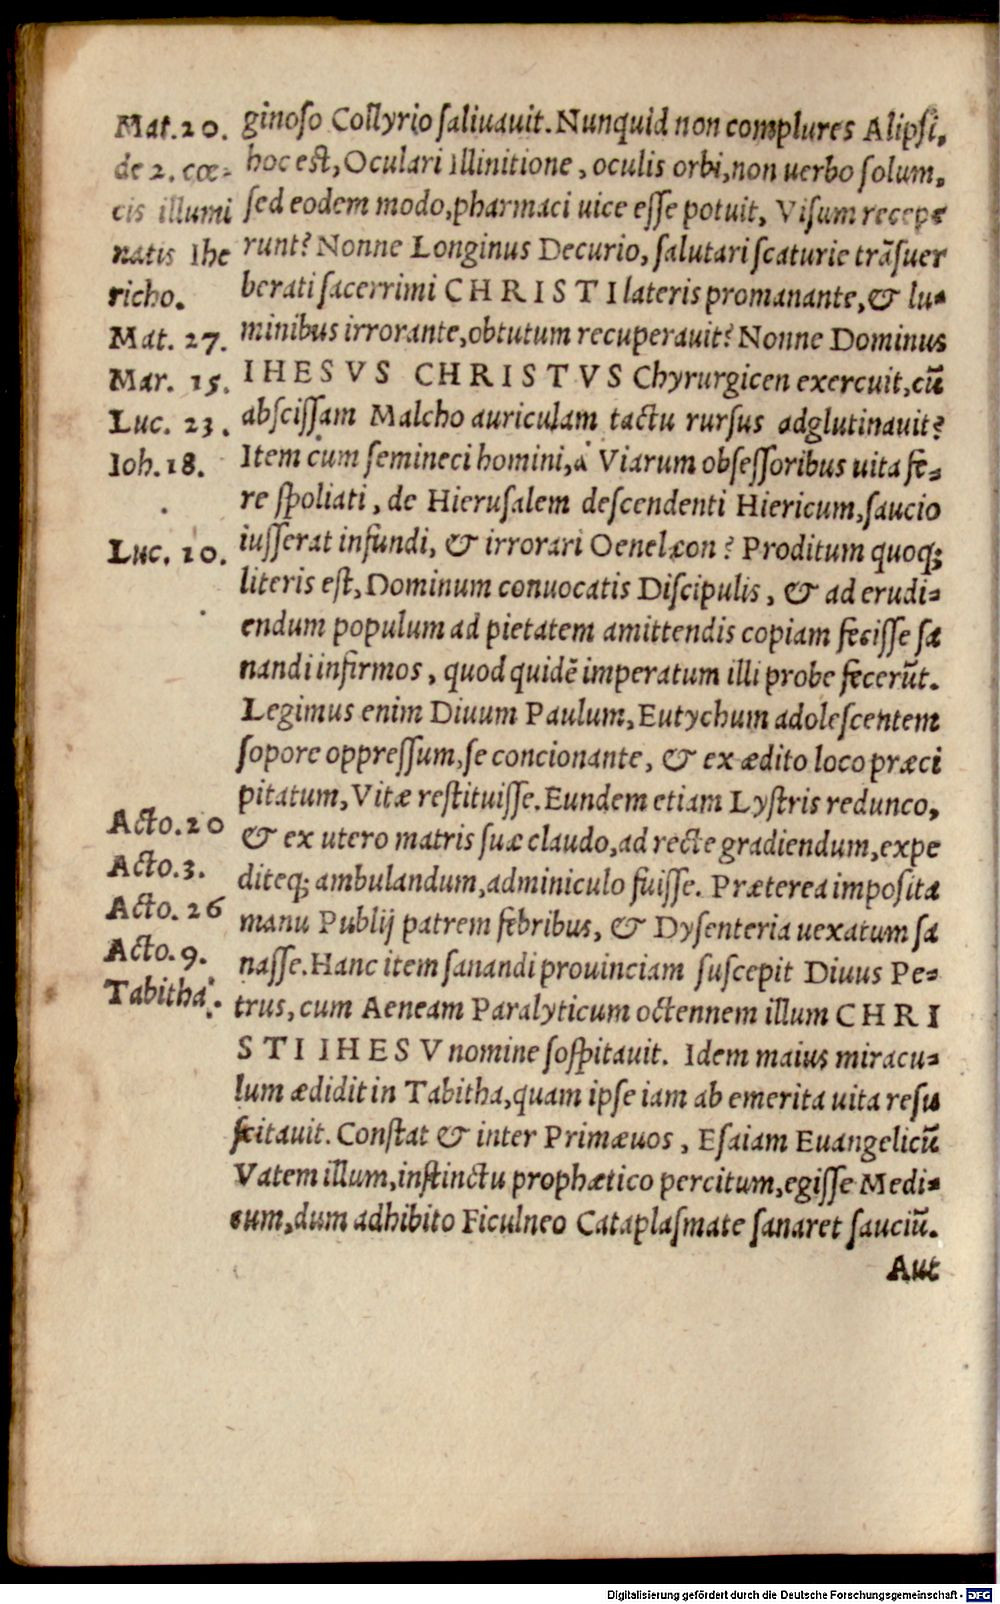 Mat. 20.
de 2. cæ-
cis illumi
natis Ihe
richo.
Mat. 27.
Mar. 15.
Luc. 23.
Ioh. 18.
Luc. 10.
Acto. 20
Acto. 3.
Acto. 26
Acto. 9.
Tabitha.
ginoſo Collyrio ſaliuauit. Nunquid non complures Alipſi,
hoc eſt, Oculari illinitione, oculis orbi, non uerbo ſolum,
ſed eodem modo, pharmaci uice eſſe potuit, Viſum recepe
runt? Nonne Longinus Decurio, ſalutari ſcaturie trãſuer
berati ſacerrimi CHRISTI lateris promanante, & lu-
minibus irrorante, obtutum recuperauit? Nonne Dominus
IHESVS CHRISTVS Chyrurgicen exercuit, cũ
abſciſſam Malcho auriculam tactu rurſus adglutinauit?
Item cum ſemineci homini, à Viarum obſeſſoribus uita fe-
re ſpoliati, de Hieruſalem deſcendenti Hiericum, ſaucio
iuſſerat infundi, & irrorari Oenelæon? Proditum quoq;
literis eſt, Dominum conuocatis Diſcipulis, & ad erudi-
endum populum ad pietatem amittendis copiam feciſſe ſa
nandi infirmos, quod quidẽ imperatum illi probe fecerũt.
Legimus enim Diuum Paulum, Eutychum adoleſcentem
ſopore oppreſſum, ſe concionante, & ex ædito loco præci
pitatum, Vitæ reſtituiſſe. Eundem etiam Lyſtris redunco,
& ex utero matris ſuæ claudo, ad recte gradiendum, expe
diteq; ambulandum, adminiculo fuiſſe. Præterea impoſita
manu Publij patrem febribus, & Dyſenteria uexatum ſa
naſſe. Hanc item ſanandi prouinciam ſuſcepit Diuus Pe-
trus, cum Aeneam Paralyticum octennem illum CHRI
STI IHESV nomine ſoſpitauit. Idem maius miracu-
lum ædidit in Tabitha, quam ipſe iam ab emerita uita reſu
ſcitauit. Conſtat & inter Primæuos, Eſaiam Euangelicũ
Vatem illum, inſtinctu prophætico percitum, egiſſe Medi-
cum, dum adhibito Ficulneo Cataplaſmate ſanaret ſauciũ.
Aut
Digitalisierung gefördert durch die Deutsche Forschungsgemeinschaft - DFG